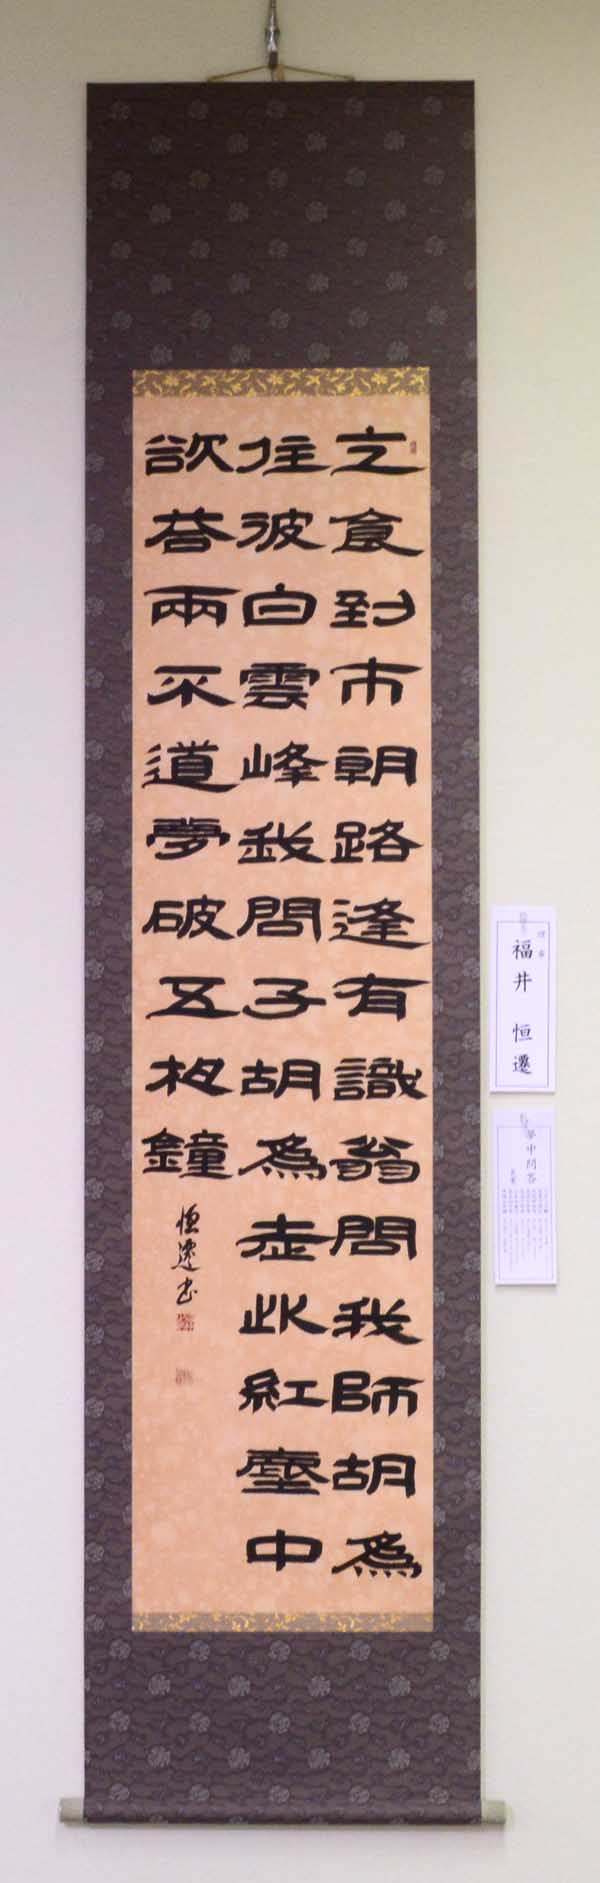 乞食到市朝路逢有識翁問我師胡爲
住彼白雲峰我問子胡爲走此紅塵中
欲荅兩不道夢破五枚鐘
恒遷書
福井 恒遷
夢中問答